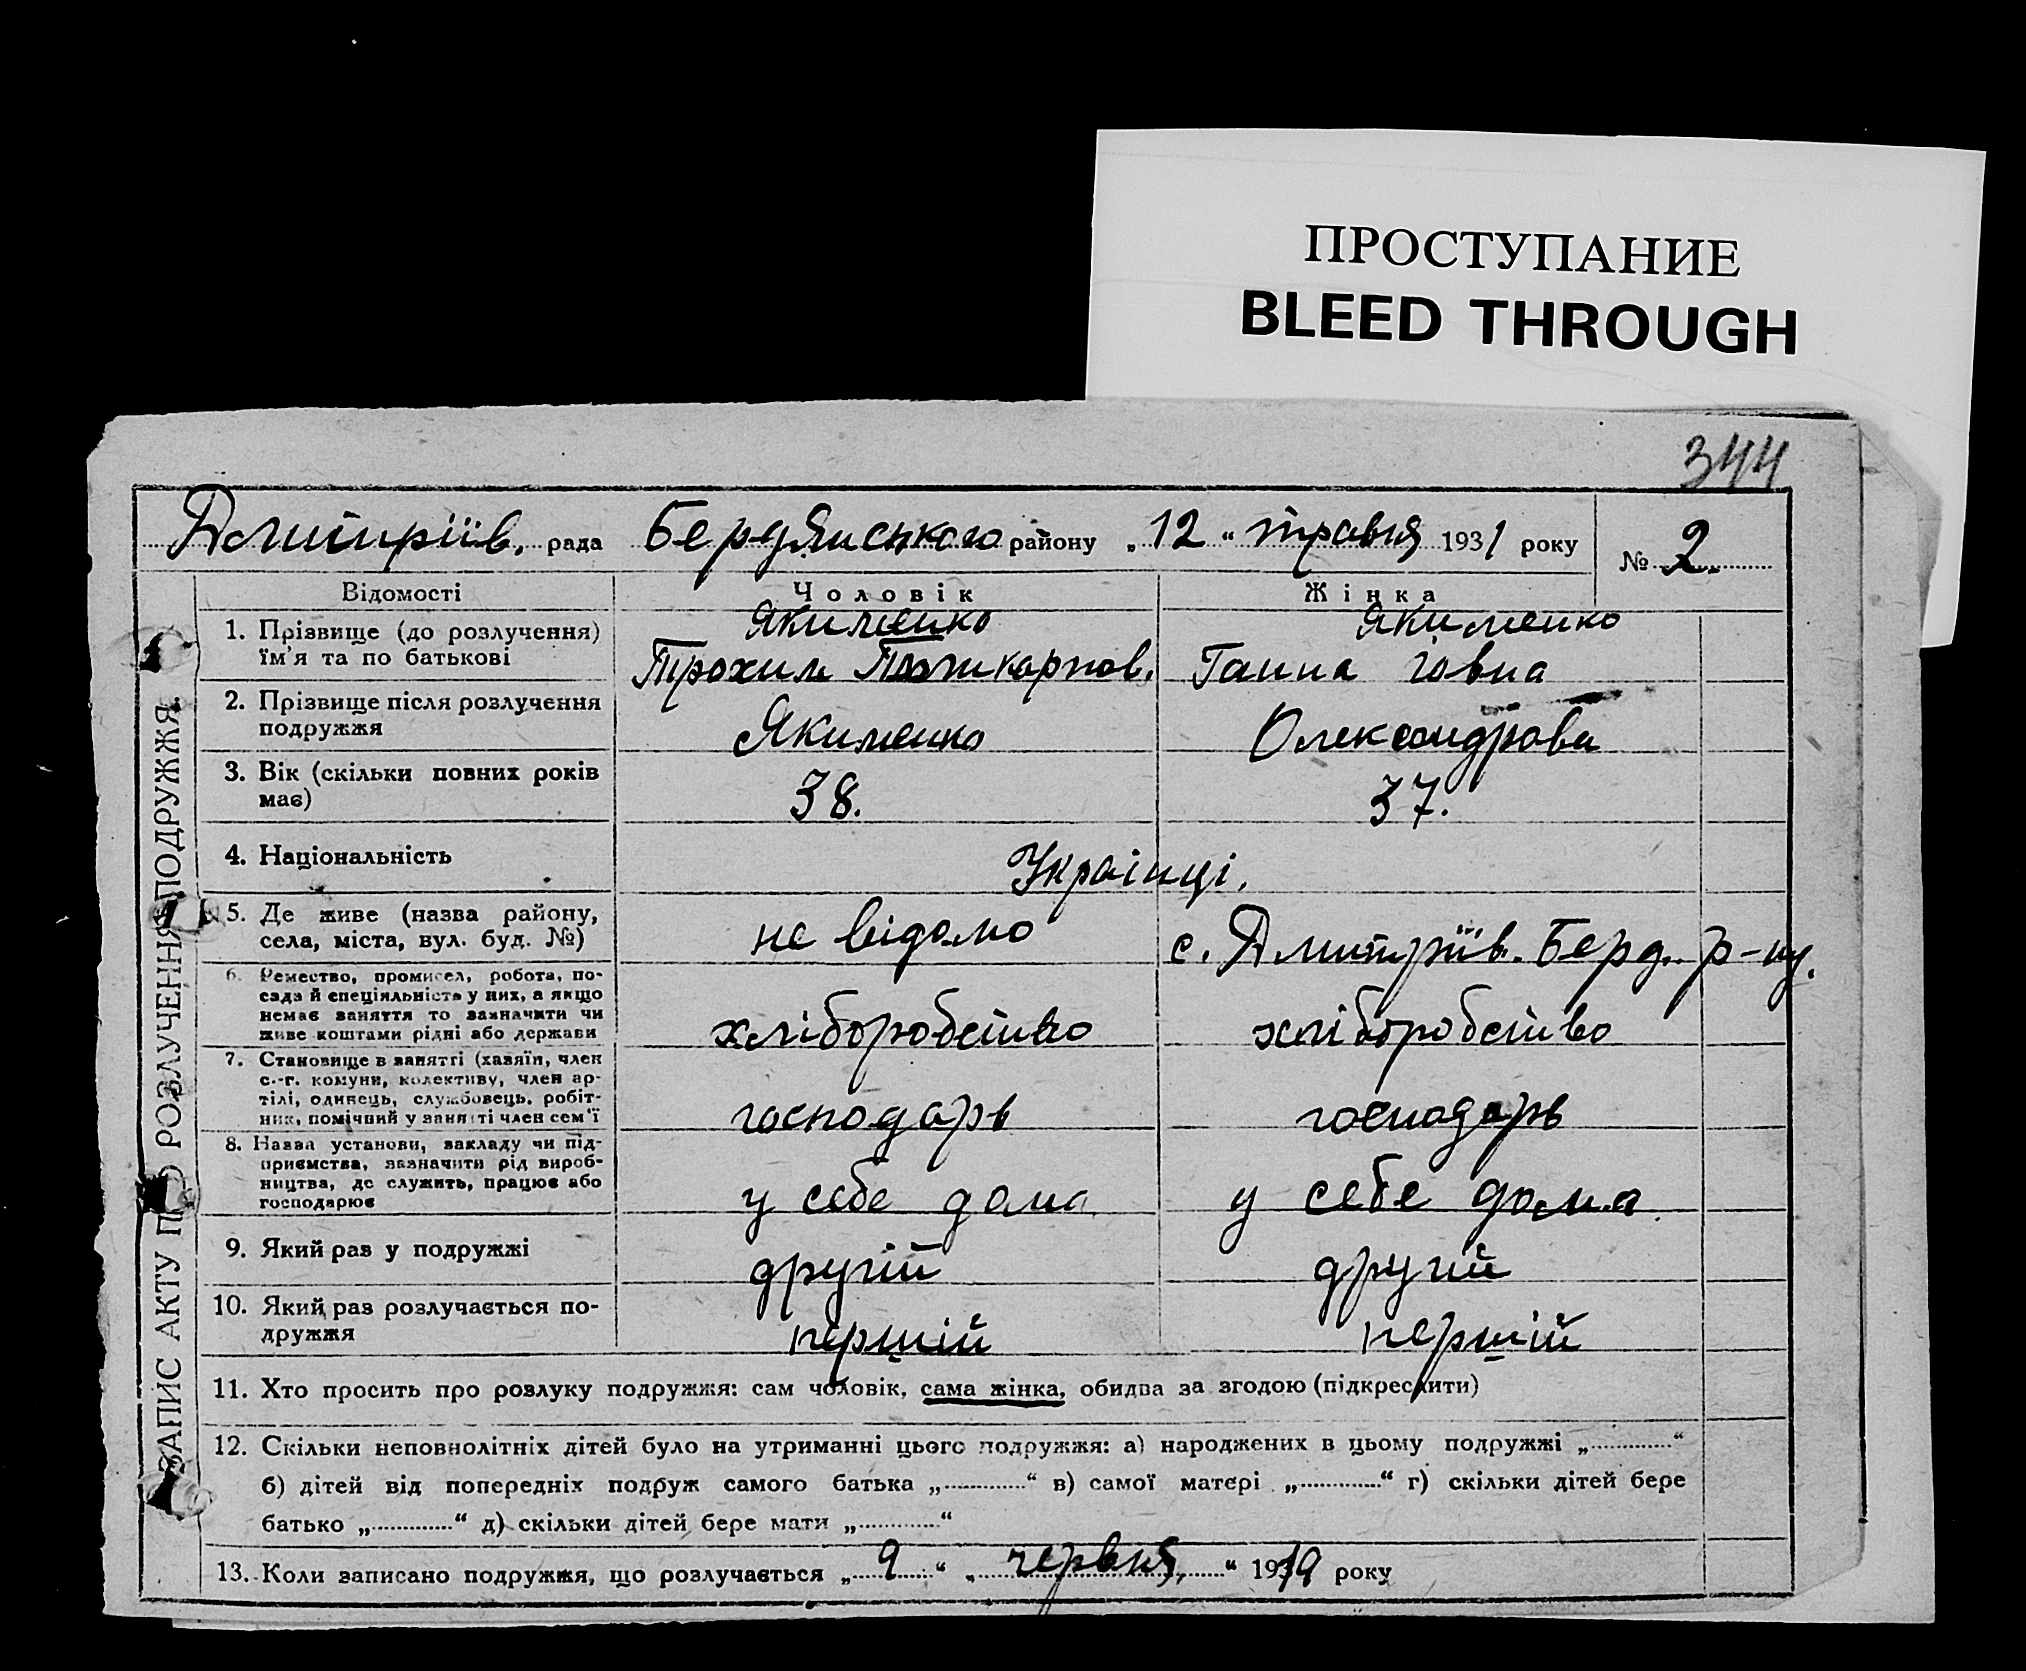 ПРОСТУПАНИЕ
BLEED THROUGH
344
Дмитріїв. рада Бердянського району „12“ травня 1931 року № 2.
ЗАПИС АКТУ ПРО РОЗЛУЧЕННЯ ПОДРУЖЖЯ.
Відомості Чоловік Жінка
1. Прізвище (до розлучення) їм'я та по батькові
Якименко Якименко
Трохим Полікарпов. Ганна Іовна
2. Прізвище після розлучення подружжя
Якименко Олександрова
3. Вік (скільки повних років має)
38. 37.
4. Національність
Украінці.
5. Де живе (назва району, села, міста, вул. буд. №)
не відомо с. Дмитріїв. Берд. р-ну.
6. Ремество, промисел, робота, по-
сада й спеціяльність у них, а якщо
немає заняття то зазначити чи
живе коштами рідні або держави
хліборобство хліборобство
7. Становище в занятті (хазяїн, член
с.-г. комуни, колективу, член ар-
тілі, одинець, службовець, робіт-
ник, помічний у занятті член сем'ї
господарь господарь
8. Назва установи, закладу чи під-
приємства, зазначити рід вироб-
ництва, де служить, працює або
господарює
у себе дома у себе дома
9. Який раз у подружжі
другій другій
10. Який раз розлучається по-
дружжя
першій першій
11. Хто просить про розлуку подружжя: сам чоловік, сама жінка, обидва за згодою (підкреслити)
12. Скільки неповнолітніх дітей було на утриманні цього подружжя: а) народжених в цьому подружжі „..............“
б) дітей від попередніх подруж самого батька „..............“ в) самої матері „..............“ г) скільки дітей бере
батько „..............“ д) скільки дітей бере мати „..............“
13. Коли записано подружжя, що розлучається „9“ „червня“ 1919 року